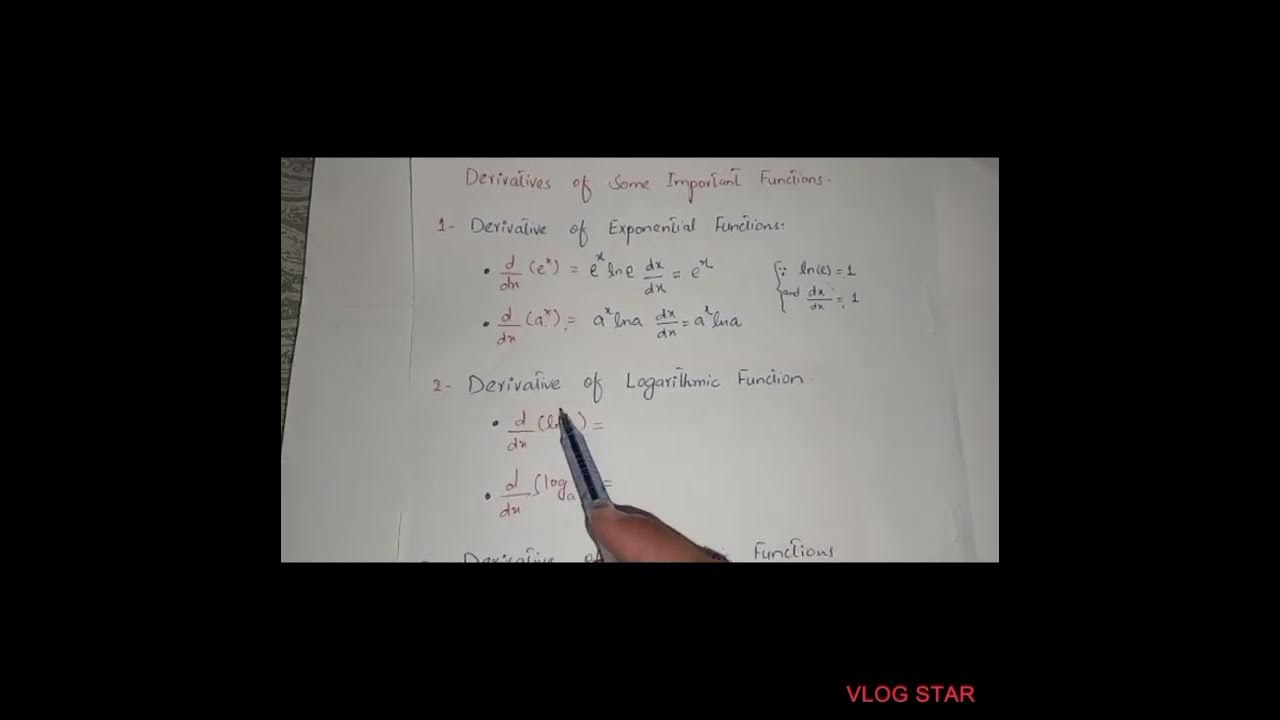 Derivatives of Some Important Functions.
1- Derivative of Exponential Functions:
• d/dx (e^x) = e^x ln e dx/dx = e^x {∵ ln(e) = 1
and dx/dx = 1
• d/dx (a^x) = a^x ln a dx/dx = a^x ln a
2- Derivative of Logarithmic Function.
• d/dx ( ) =
• d/dx {log_a =
Derivative of Functions
VLOG STAR